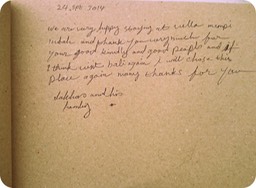 24, sep 2014
we are very happy staying at villa
and thank you very much for
your good family and good people and if
I think visit bali again I will chose this
place again many thanks for you
and his
family